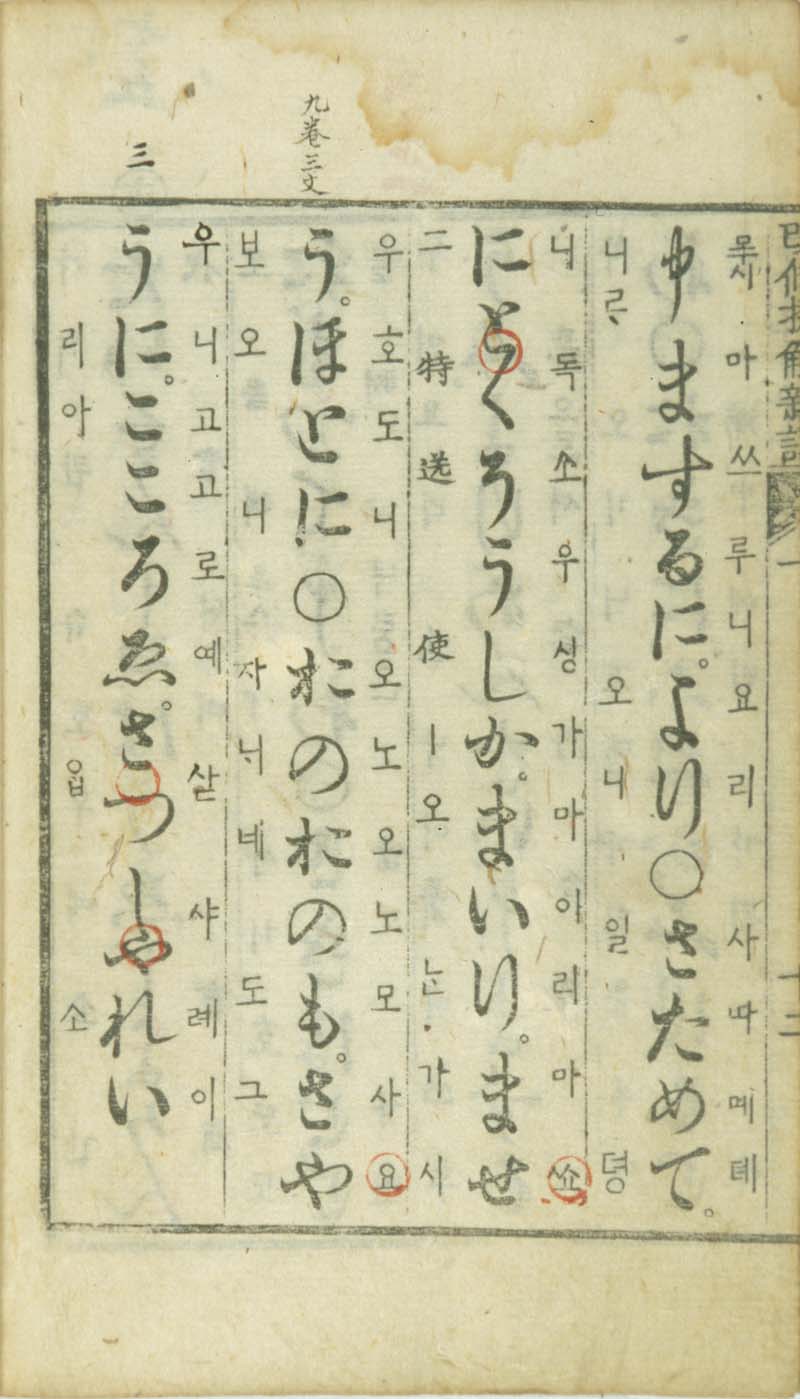 改修捷解新語 一 十二
마쓰루니요리 사따몌뎨
申まするに。より○さためて。
니ᄅᆞ오니 일뎡
니독소우싱가마이리마쇼
にとくそうしか。まいり。ませ
二特送使ㅣ오ᄂᆞᆫ가시
九巻三丈
우호도니 오노오노모사요
う。ほとに○おのおのも。さや
보오니 자니네도 그
三
우니고고로예살샤례이
うに。こころゑ。さつしやれい
리아ᄋᆞᆸ소